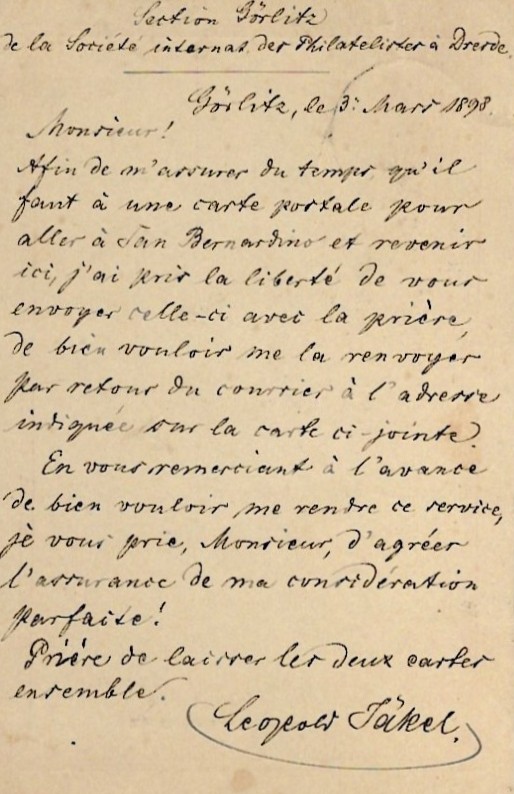 Section Görlitz
de la Société internat. des Philatelistes à Dresde.
Görlitz, le 3. Mars 1898.
Monsieur!
Afin de m'assurer du temps, qu'il
faut à une carte postale pour
aller à San Bernardino et revenir
ici, j'ai pris la liberté de vous
envoyer celle-ci avec la prière,
de bien vouloir me la renvoyer
par retour du courrier à l'adresse
indiquée sur la carte ci-jointe.
En vous remerciant à l'avance
de bien vouloir me rendre ce service,
je vous prie, Monsieur, d'agréer
l'assurance de ma considération
parfaite!
Prière de laisser les deux cartes
ensemble.
Leopold Jäkel.